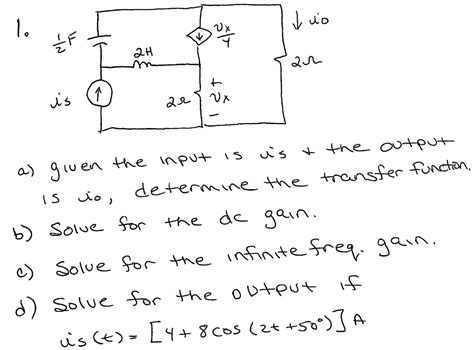 1.
½F
2H
vx/4
↓ io
2Ω
is
2Ω
+
vx
−
a) given the input is is & the output
is io, determine the transfer function.
b) Solve for the dc gain.
c) Solve for the infinite freq. gain.
d) Solve for the output if
is(t) = [4 + 8 cos (2t + 50°)] A